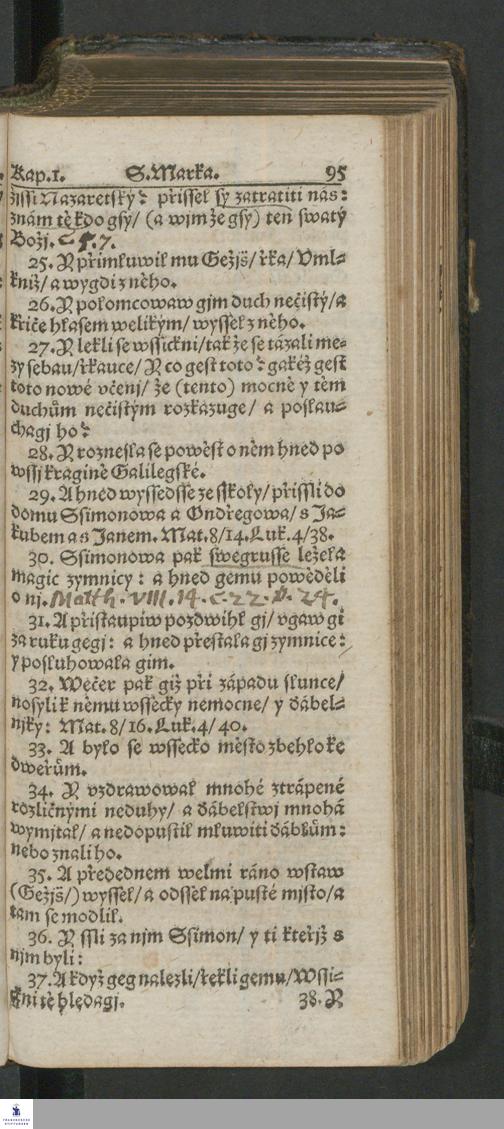 Kap.1. S. Marka. 95
žissi Nazaretský? přissel sy zatratiti nás:
znám tě kdo gsy/ (a wjm že gsy) ten swatý
Boží.
25. Y přimluwil mu Gežjš/ řka/ Vml-
kniž/ a wygdi z něho.
26. Y polomcowaw gjm duch nečistý/ a
křiče hlasem welikým/ wyssel z něho.
27. Y lekli se wssickni/ tak že se tázali me-
zy sebau/ řkauce/ Y co gest toto? gakéž gest
toto nowé včenj/ že (tento) mocně y těm
duchům nečistým rozkazuge/ a poslau-
chagj ho?
28. Y roznesla se powěst o něm hned po
wssj kragině Galilegské.
29. A hned wyssedsse ze sskoly/ přissli do
domu Ssimonowa a Ondřegowa/ s Ja-
kubem a s Janem. Mat.8/14. Luk.4/38.
30. Ssimonowa pak swegrusse ležela
magic zymnicy: a hned gemu powěděli
o nj. Matth. VIII. 14. c. 22. 24.
31. A přistaupiw pozdwihl gj/ vgaw gi
za ruku gegj: a hned přestala gj zymnice:
y posluhowala gim.
32. Wečer pak giž při západu slunce/
nosyli k němu wssecky nemocne/ y ďábel-
njky: Mat.8/16. Luk.4/40.
33. A bylo se wssecko město zběhlo ke
dweřům.
34. Y vzdrawowal mnohé ztrápené
rozličnými neduhy/ a ďábelstwj mnohá
wymjtal/ a nedopustil mluwiti ďáblům:
nebo znali ho.
35. A předednem welmi ráno wstaw
(Gežjš/) wyssel/ a odssel na pusté mjsto/ a
tam se modlil.
36. Y ssli za njm Ssimon/ y ti kteřjž s
njm byli:
37. A když geg nalezli/ řekli gemu/ Wssi-
kni tě hledagj. 38. Y
FRANCKESCHE
STIFTUNGEN